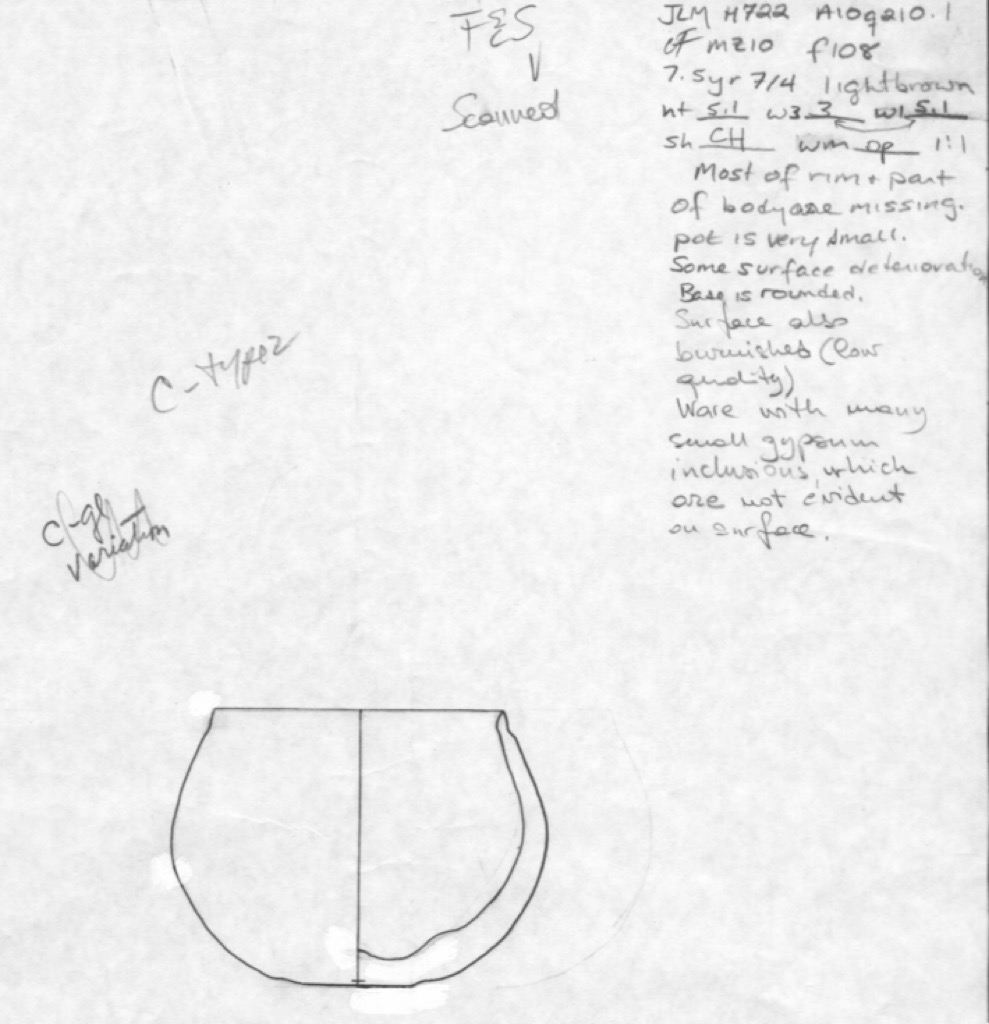 FES
Scanned
JLM H722 A10q210.1
cf mz10 f108
7.5yr 7/4 lightbrown
ht 5.1 w3 3 w1 5.1
sh CH wm op 1:1
Most of rim + part
of body are missing.
pot is very small.
Some surface deterioration
Base is rounded.
Surface also
burnished (low
quality)
Ware with many
small gypsum
inclusions, which
are not evident
on surface.
C-type2
variation